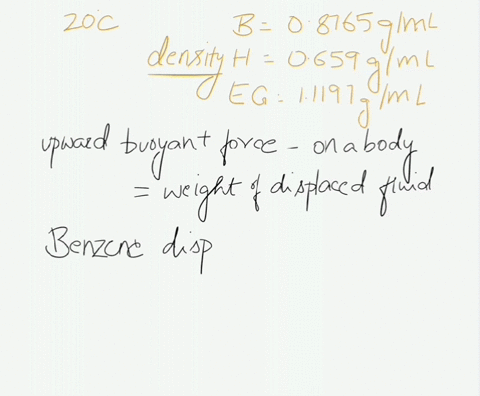 20C B = 0.8765 g/mL
density H = 0.659 g/mL
EG = 1.1197 g/mL
upward buoyant force - on a body
= weight of displaced fluid
Benzene disp